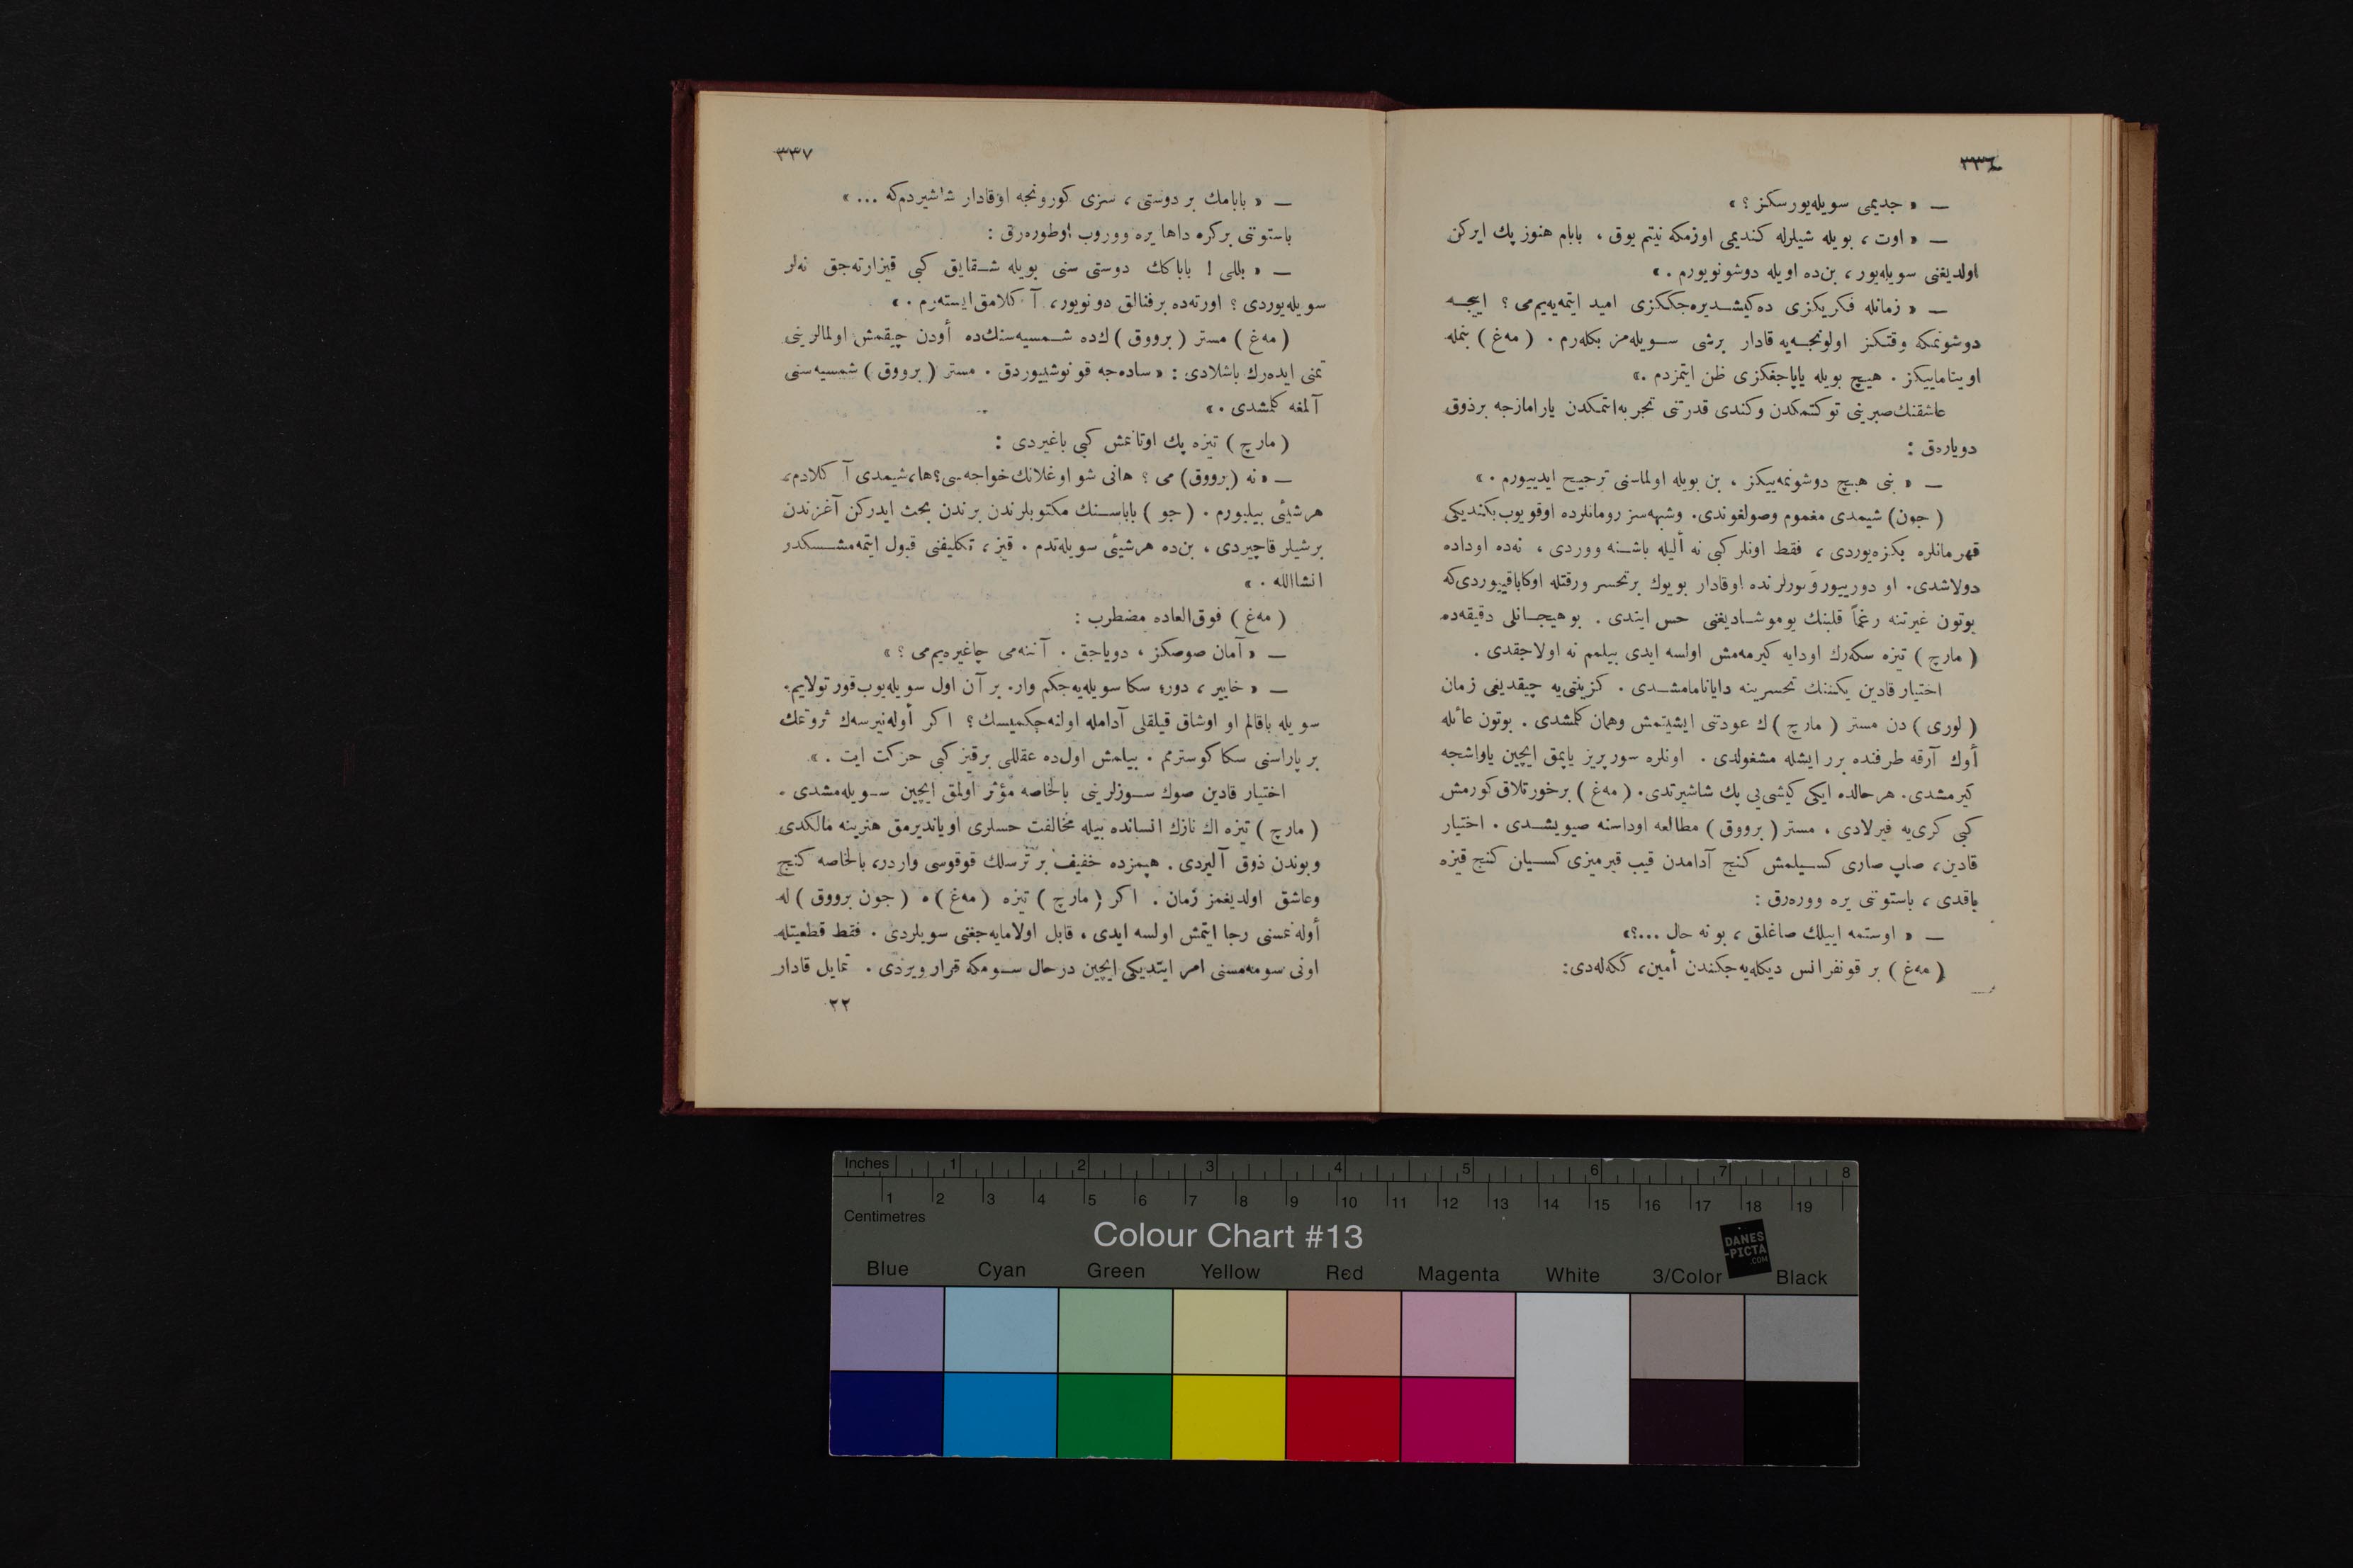 ٣٣٦
— « جديمى سويله‌يورسكز ؟ »
— « اوت ، بويله شيلرله كنديمى اوزمكه نيتم يوق ، بابام هنوز پك ايركن
اولديغنى سويله‌يور ، بن‌ده اويله دوشونويورم . »
— « زمانله فكريكزى ده‌كيشديره‌جككزى اميد ايتمه‌يه‌يم‌مى ؟ اييجه
دوشونمكه وقتكز اولونجه‌يه قادار برشى سويله‌مز بكله‌رم . ( مه‌غ ) بنمله
اويناماييكز . هيچ بويله ياپاجغكزى ظن ايتمزدم . »
عاشقنك صبرينى توكتمكدن وكندى قدرتنى تجربه‌ايتمكدن يارامازجه برذوق
دويارەق :
— « بنى هيچ دوشونمه‌ييكز ، بن بويله اولماسنى ترجيح ايدييورم . »
( جون) شيمدى مغموم وصولغوندى. وشبهه‌سز رومانلرده اوقويوب بكنديكى
قهرمانلره بكزه‌يوردى ، فقط اونلر كبى نه أليله باشنه ووردى ، نه‌ده اوداده
دولاشدى. او دورييور و اوقادار بويوك برتحسر ورقتله اوكاباقييوردى‌كه
بوتون غيرتنه رغماً قلبنك يوموشاديغنى حس ايتدى . بوهيجانلى دقيقه‌ده
( مارچ ) تيزه سكه‌رك اودايه كيرمه‌مش اولسه ايدى بيلمم نه اولاجقدى .
اختيار قادين يكننك تحسرينه دايانامامشدى . كزينتى‌يه چيقديغى زمان
( لورى ) دن مستر ( مارچ )ك عودتنى ايشيتمش وهمان كلمشدى . بوتون عائله
أوك آرقه طرفنده برر ايشله مشغولدى . اونلره سورپريز ياپمق ايچين ياواشجه
كيرمشدى. هرحالده ايكى كيشى‌يى پك شاشيرتدى. ( مه‌غ ) برخورتلاق كورمش
كبى كرى‌يه فيرلادى ، مستر ( برووق ) مطالعه اوداسنه صيويشدى . اختيار
قادين، صاپ صارى كسيلمش كنج آدامدن قيب قيرميزى كسيلن كنج قيزه
باقدى ، باستوننى يره ووره‌رق :
— « اوستمه اييلك صاغلق ، بو نه حال ...؟»
( مه‌غ ) بر قونفرانس ديكله‌يه‌جكندن أمين، ككه‌له‌دى:
٣٣٧
— « بابامك بر دوستى ، سزى كورونجه اوقادار شاشيردم‌كه ... »
باستوننى بركره داها يره ووروب اوطوره‌رق :
— « بللى ! باباكك دوستى سنى بويله شقايق كبى قيزارته‌جق نه‌لر
سويله‌يوردى ؟ اورته‌ده برفنالق دونويور، آكلامق ايسته‌رم . »
( مه‌غ ) مستر ( برووق )ك‌ده شمسيه‌سنك‌ده أودن چيقمش اولمالرينى
تمنى ايده‌رك باشلادى : « ساده‌جه قونوشييوردق . مستر ( برووق ) شمسيه‌سنى
آلمغه كلمشدى . »
( مارچ ) تيزه پك اوتانمش كبى باغيردى :
— « نه (برووق) مى ؟ هانى شو اوغلانك خواجه‌سى؟ها،شيمدى آكلادم،
هرشيئى بيليورم . ( جو ) باباسنك مكتوبلرندن برندن بحث ايدركن آغزندن
برشيلر قاچيردى ، بن‌ده هرشيئى سويله‌تدم . قيز ، تكليفنى قبول ايتمه‌مشسكدر
انشاالله . »
( مه‌غ ) فوق‌العاده مضطرب :
— « آمان صوصكز ، دوياجق . آننه‌مى چاغيره‌يم‌مى ؟ »
— « خايير ، دور، سكا سويله‌يه‌جكم وار. بر آن اول سويله‌يوب قورتولايم.
سويله باقالم او اوشاق قيلقلى آدامله اولنه‌جكميسك ؟ اكر أوله‌نيرسه‌ك ثروتمك
بر پاراسنى سكا كوسترمم . بيلمش اول‌ده عقللى برقيز كبى حركت ايت . »
اختيار قادين صوك سوزلرينى بالخاصه مؤثر اولمق ايچين سويله‌مشدى .
( مارچ ) تيزه اك نازك انسانده بيله مخالفت حسلرى اويانديرمق هنرينه مالكدى
وبوندن ذوق آليردى . هپمزده خفيف بر ترسلك قوقوسى واردر، بالخاصه كنج
وعاشق اولديغمز زمان . اكر ( مارچ ) تيزه ( مه‌غ )ه ( جون برووق ) له
أوله‌نمسنى رجا ايتمش اولسه ايدى ، قابل اولامايه‌جغنى سويلردى . فقط قطعيتله
اونى سومه‌مسنى امر ايتديكى ايچين درحال سومكه قرار ويردى . تمايل قادار
٢٢
Inches 1 2 3 4 5 6 7 8
1 2 3 4 5 6 7 8 9 10 11 12 13 14 15 16 17 18 19
Centimetres
Colour Chart #13
DANES
-PICTA
.COM
Blue Cyan Green Yellow Red Magenta White 3/Color Black